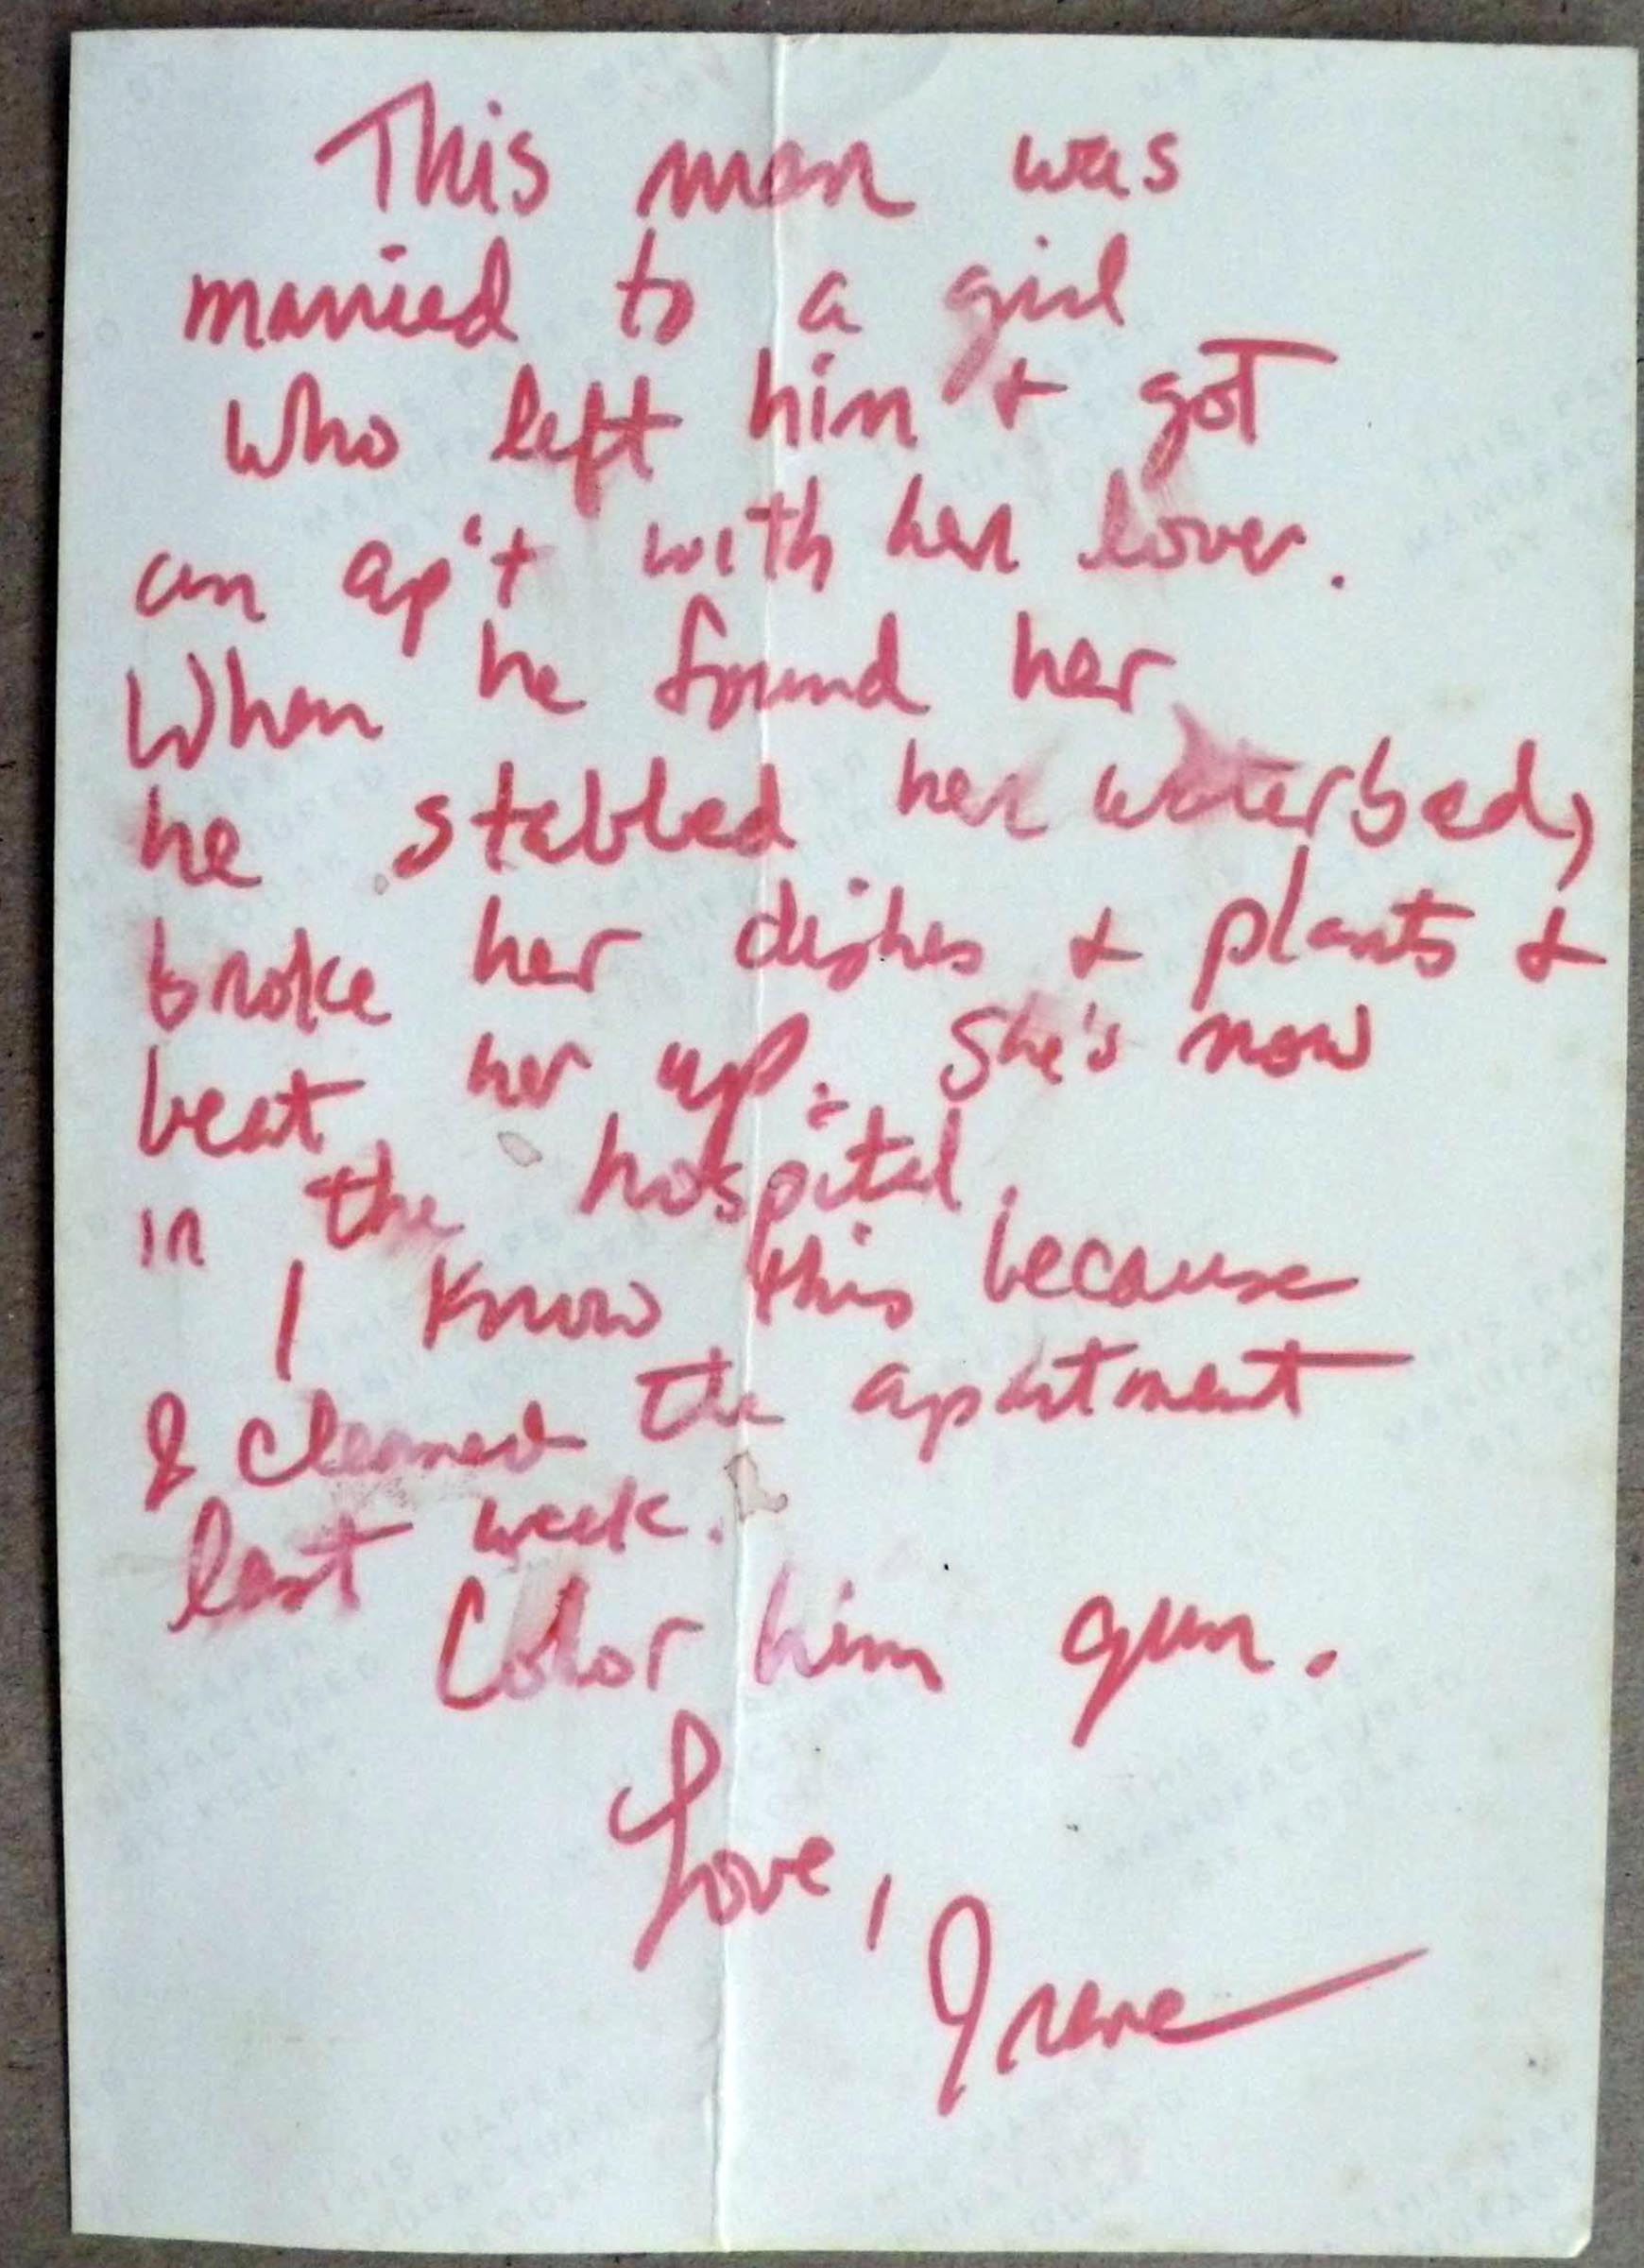 This man was
married to a girl
who left him + got
an ap't with her lover.
When he found her
he stabbed her waterbed,
broke her dishes + plants +
beat her up. She's now
in the hospital.
I know this because
I cleaned the apartment
last week.
Color him gun.
Love,
Irene
THIS PAPER
MANUFACTURED
BY KODAK